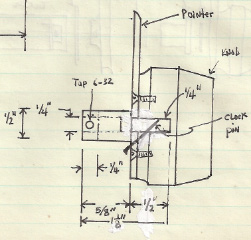 Pointer
Knob
Tap 6-32
1/4"
1/2"
1/4"
clock
pin
1/4"
5/8"
1/2"
1 1/8"